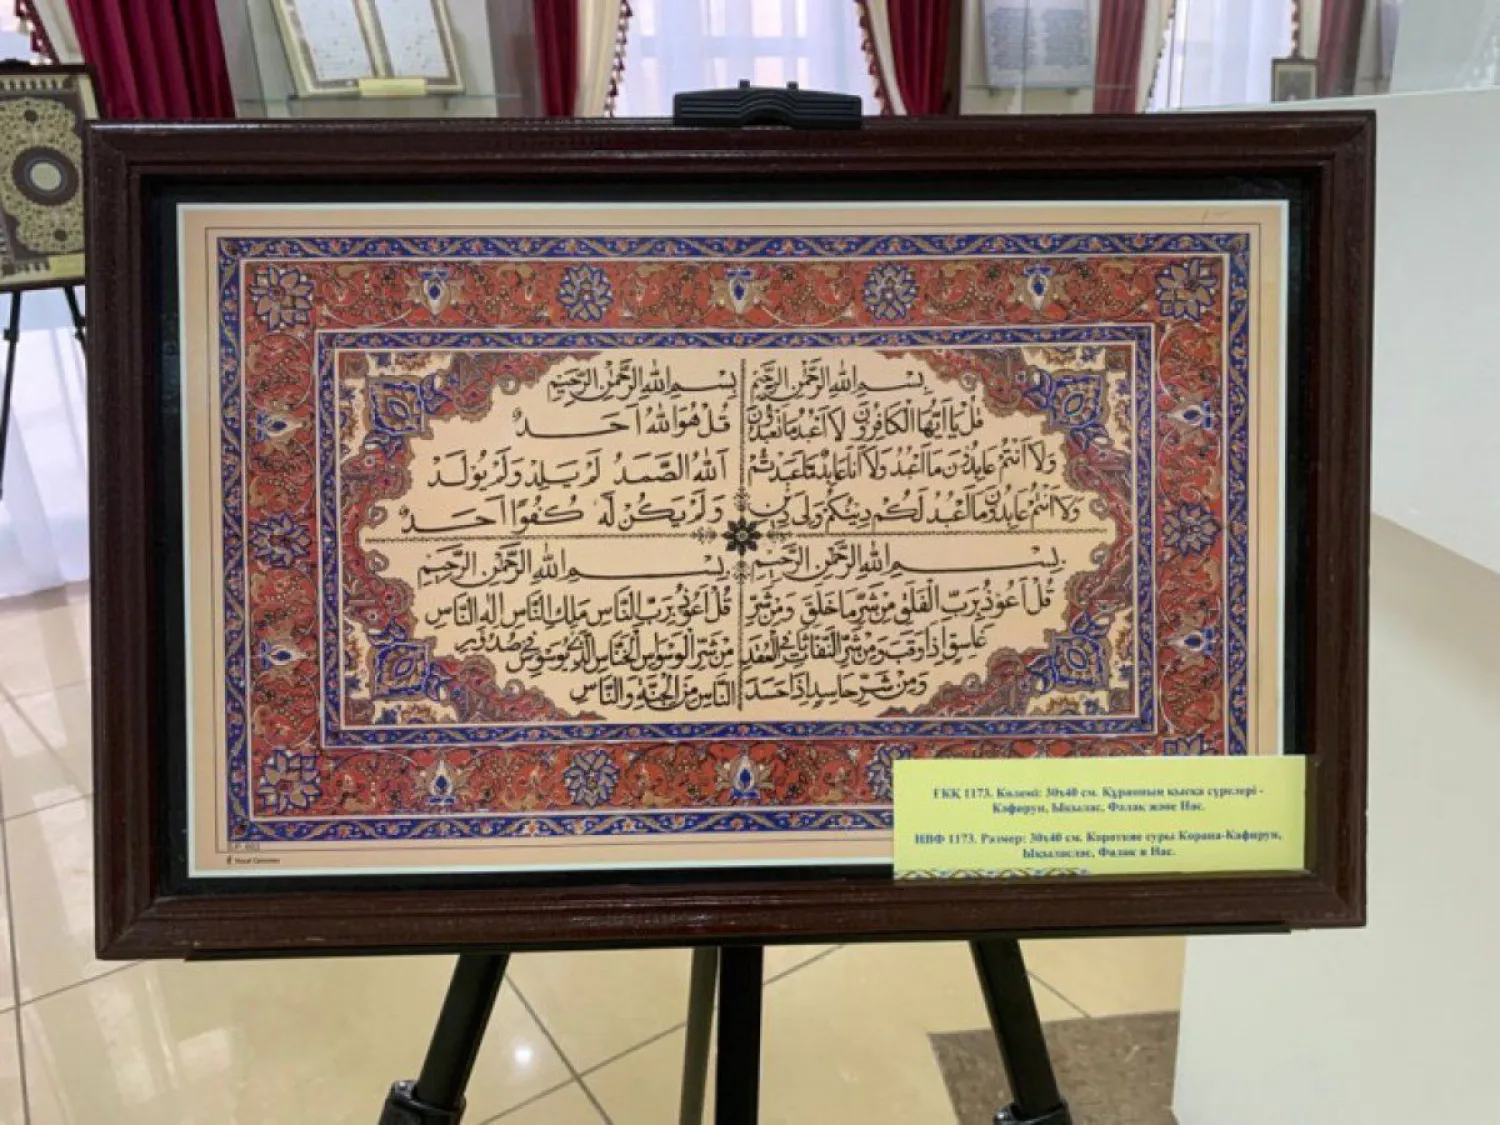 بِسْمِ اللهِ الرَّحْمٰنِ الرَّحِيْمِ
قُلْ يَا اَيُّهَا الْكَافِرُوْنَ لَا اَعْبُدُ مَا تَعْبُدُوْنَ
وَلَا اَنْتُمْ عَابِدُوْنَ مَا اَعْبُدُ وَلَا اَنَا عَابِدٌ مَا عَبَدْتُمْ
وَلَا اَنْتُمْ عَابِدُوْنَ مَا اَعْبُدُ لَكُمْ دِيْنُكُمْ وَلِىَ دِيْنِ
بِسْمِ اللهِ الرَّحْمٰنِ الرَّحِيْمِ
قُلْ هُوَ اللهُ اَحَدٌ
اَللهُ الصَّمَدُ لَمْ يَلِدْ وَلَمْ يُوْلَدْ
وَلَمْ يَكُنْ لَهُ كُفُوًا اَحَدٌ
بِسْمِ اللهِ الرَّحْمٰنِ الرَّحِيْمِ
قُلْ اَعُوْذُ بِرَبِّ الْفَلَقِ مِنْ شَرِّ مَا خَلَقَ وَمِنْ شَرِّ
غَاسِقٍ اِذَا وَقَبَ وَمِنْ شَرِّ النَّفَّاثَاتِ فِى الْعُقَدِ
وَمِنْ شَرِّ حَاسِدٍ اِذَا حَسَدَ
بِسْمِ اللهِ الرَّحْمٰنِ الرَّحِيْمِ
قُلْ اَعُوْذُ بِرَبِّ النَّاسِ مَلِكِ النَّاسِ اِلٰهِ النَّاسِ
مِنْ شَرِّ الْوَسْوَاسِ الْخَنَّاسِ الَّذِىْ يُوَسْوِسُ فِىْ صُدُوْرِ
النَّاسِ مِنَ الْجِنَّةِ وَالنَّاسِ
ҒКҚ 1173. Көлемі: 30х40 см. Құранның қысқа сүрелері -
Кәфирун, Ықылас, Фалақ және Нас.
НВФ 1173. Размер: 30х40 см. Короткие суры Корана-Кафирун,
Ықыласлас, Фалақ и Нас.